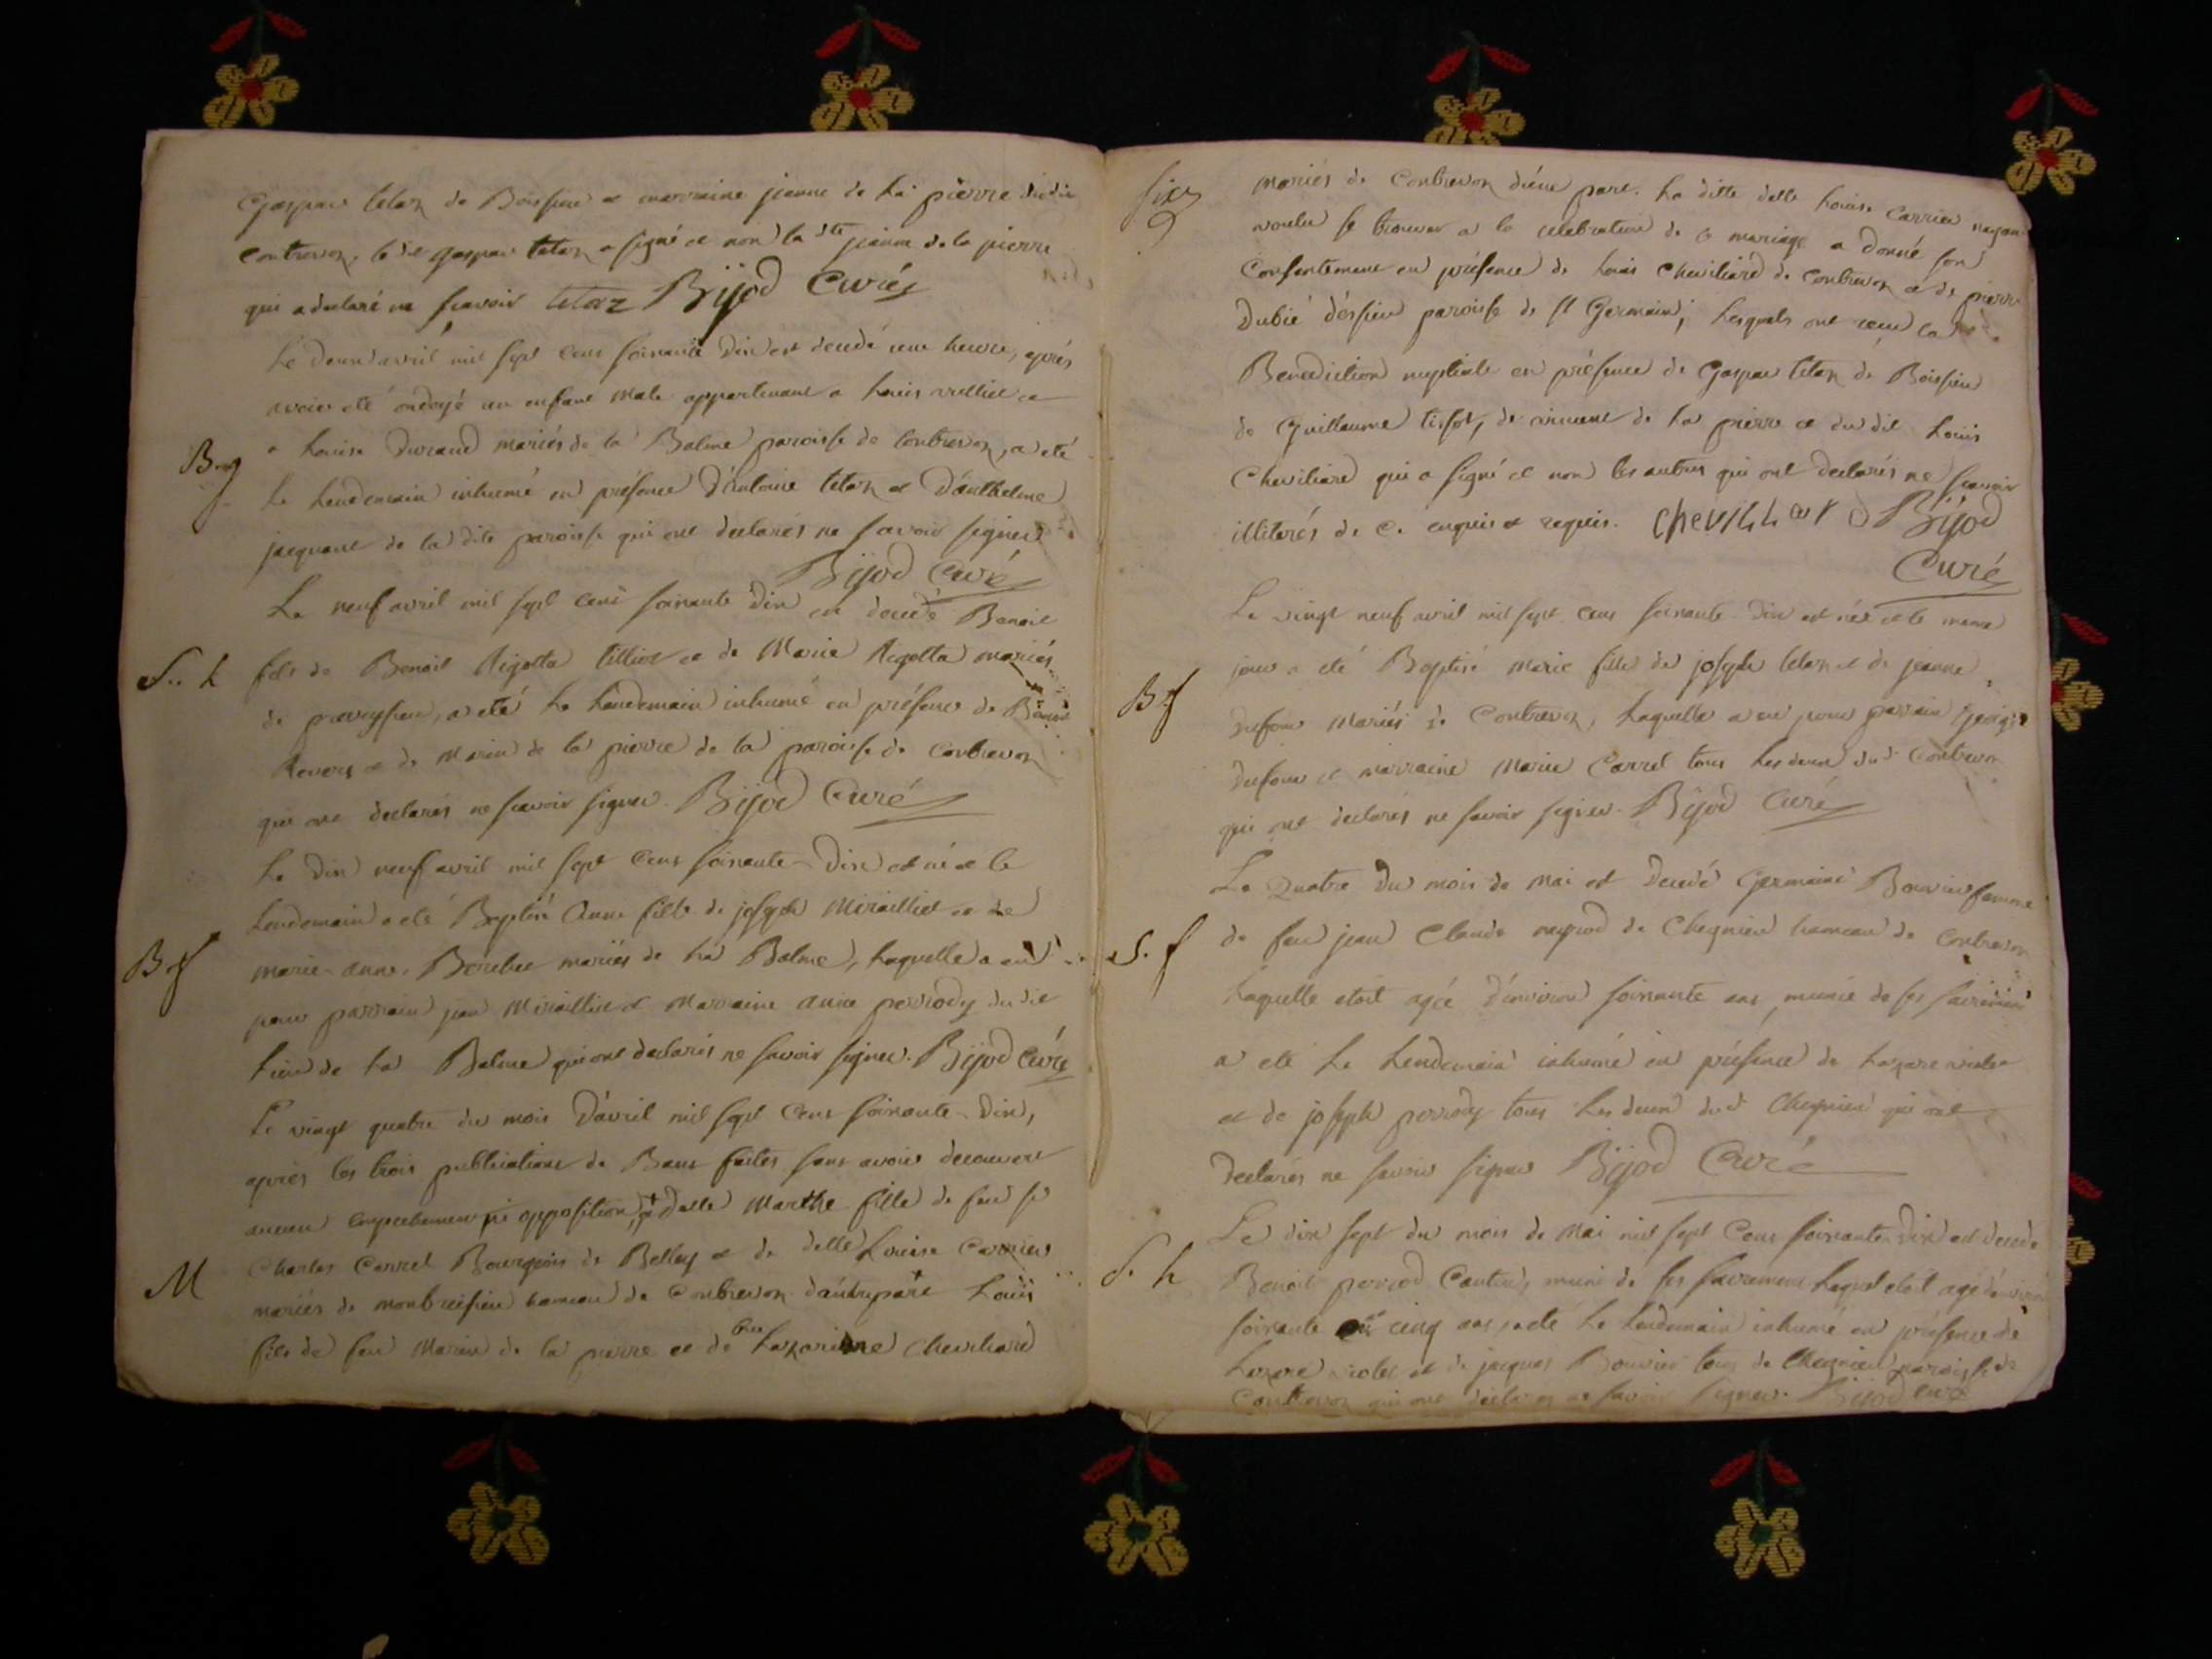 Gaspar tetaz de Boissieu et marraine jeanne de la pierre dudit
contrevoz, le dit gaspar tetaz a signé et non la dte jeanne de la pierre
qui a declaré ne scavoir tetaz Bijod Curé
Le deux avril mil sept cens soixante dix est decedé une heure, aprés
avoir eté ondoyé un enfant male appartenant a Louis
B. g
a Louise Durand mariés de la Balme paroisse de Contrevoz, a eté
le Lendemain inhumé en présence d'antoine tetaz et d'anthelme
jacquant de la dite paroisse qui ont declarés ne savoir signer
Bijod Curé
Le neuf avril mil sept cens soixante dix est decedé Benoit
S. h
fils de Benoit Rigotta tilliot et de Marie Rigotta mariés
de preveysieu, a eté le Lendemain inhumé en présence de Benoit
et de Marin de la pierre de la paroisse de Contrevoz
qui ont declarés ne scavoir signer. Bijod Curé
Le dix neuf avril mil sept cens soixante-dix est né et le
Lendemain a eté Baptisé Anne fille de joseph Miraillet et de
B. f
marie-anne mariés de la Balme, laquelle a eu
pour parrain jean Miraillet et Marraine anne perrody du dit
lieu de la Balme qui ont declarés ne savoir signer. Bijod Curé
Le vingt quatre du mois D'avril mil sept cens soixante-dix,
après les trois publications de Bans faites sans avoir decouvert
aucun empechement ni opposition, delle Marthe fille de feu sr
Charles Carrel Bourgeois de Belley et de delle Louise Carrier
M
mariés de montbreisieu hameau de Contrevoz d'autre part Louis
fils de feu Marin de la pierre et de Lazarinne Chevilliard
six
mariés de Contrevoz d'une part. La ditte delle Louise Carrier nayant
voulu se trouver a la celebration de ce mariage a donné son
Consentement en présence de Louis Chevilliard de Contrevoz et de pierre
Dubié d'éssieu paroisse de st Germain; Lesquels ont reçu la
Benediction nuptiale en présence de Gaspar tetaz de Boissieu
de Guillaume tissot, de vincent de la pierre et du dit Louis
Chevilliard qui a signé et non les autres qui ont declarés ne scavoir
illiterés de ce enquis et requis. chevilliard Bijod
Curé
Le vingt neuf avril mil sept cens soixante-dix est née et le meme
jour a eté Baptisé Marie fille de joseph tetaz et de jeanne
B. f
dufour Mariés de Contrevoz, laquelle a eu pour parrain George
dufour et marraine Marie Carrel tous les deux dudt Contrevoz
qui ont declarés ne savoir signer. Bijod Curé
Le Quatre du mois de Mai est decedé Germaine Bouvier femme
S. f
de feu jean Claude de Chegnieu hameau de Contrevoz
laquelle etoit agée d'environ soixante ans, munie de ses sacremens
a eté le Lendemain inhumé en présence de Lazare violet
et de joseph perrody tous les deux dudt Chegnieu qui ont
declarés ne savoir signer Bijod Curé
Le dix sept du mois de Mai mil sept cens soixante dix est decedé
S. h
Benoit perrod Cantin, muni de ses sacremens lequel etoit agé d'environ
soixante et cinq ans, a eté le Lendemain inhumé en présence de
Lazare violet et de jacques Bouvier tous de Chegnieu paroisse de
Contrevoz qui ont declarés ne savoir signer. Bijod curé